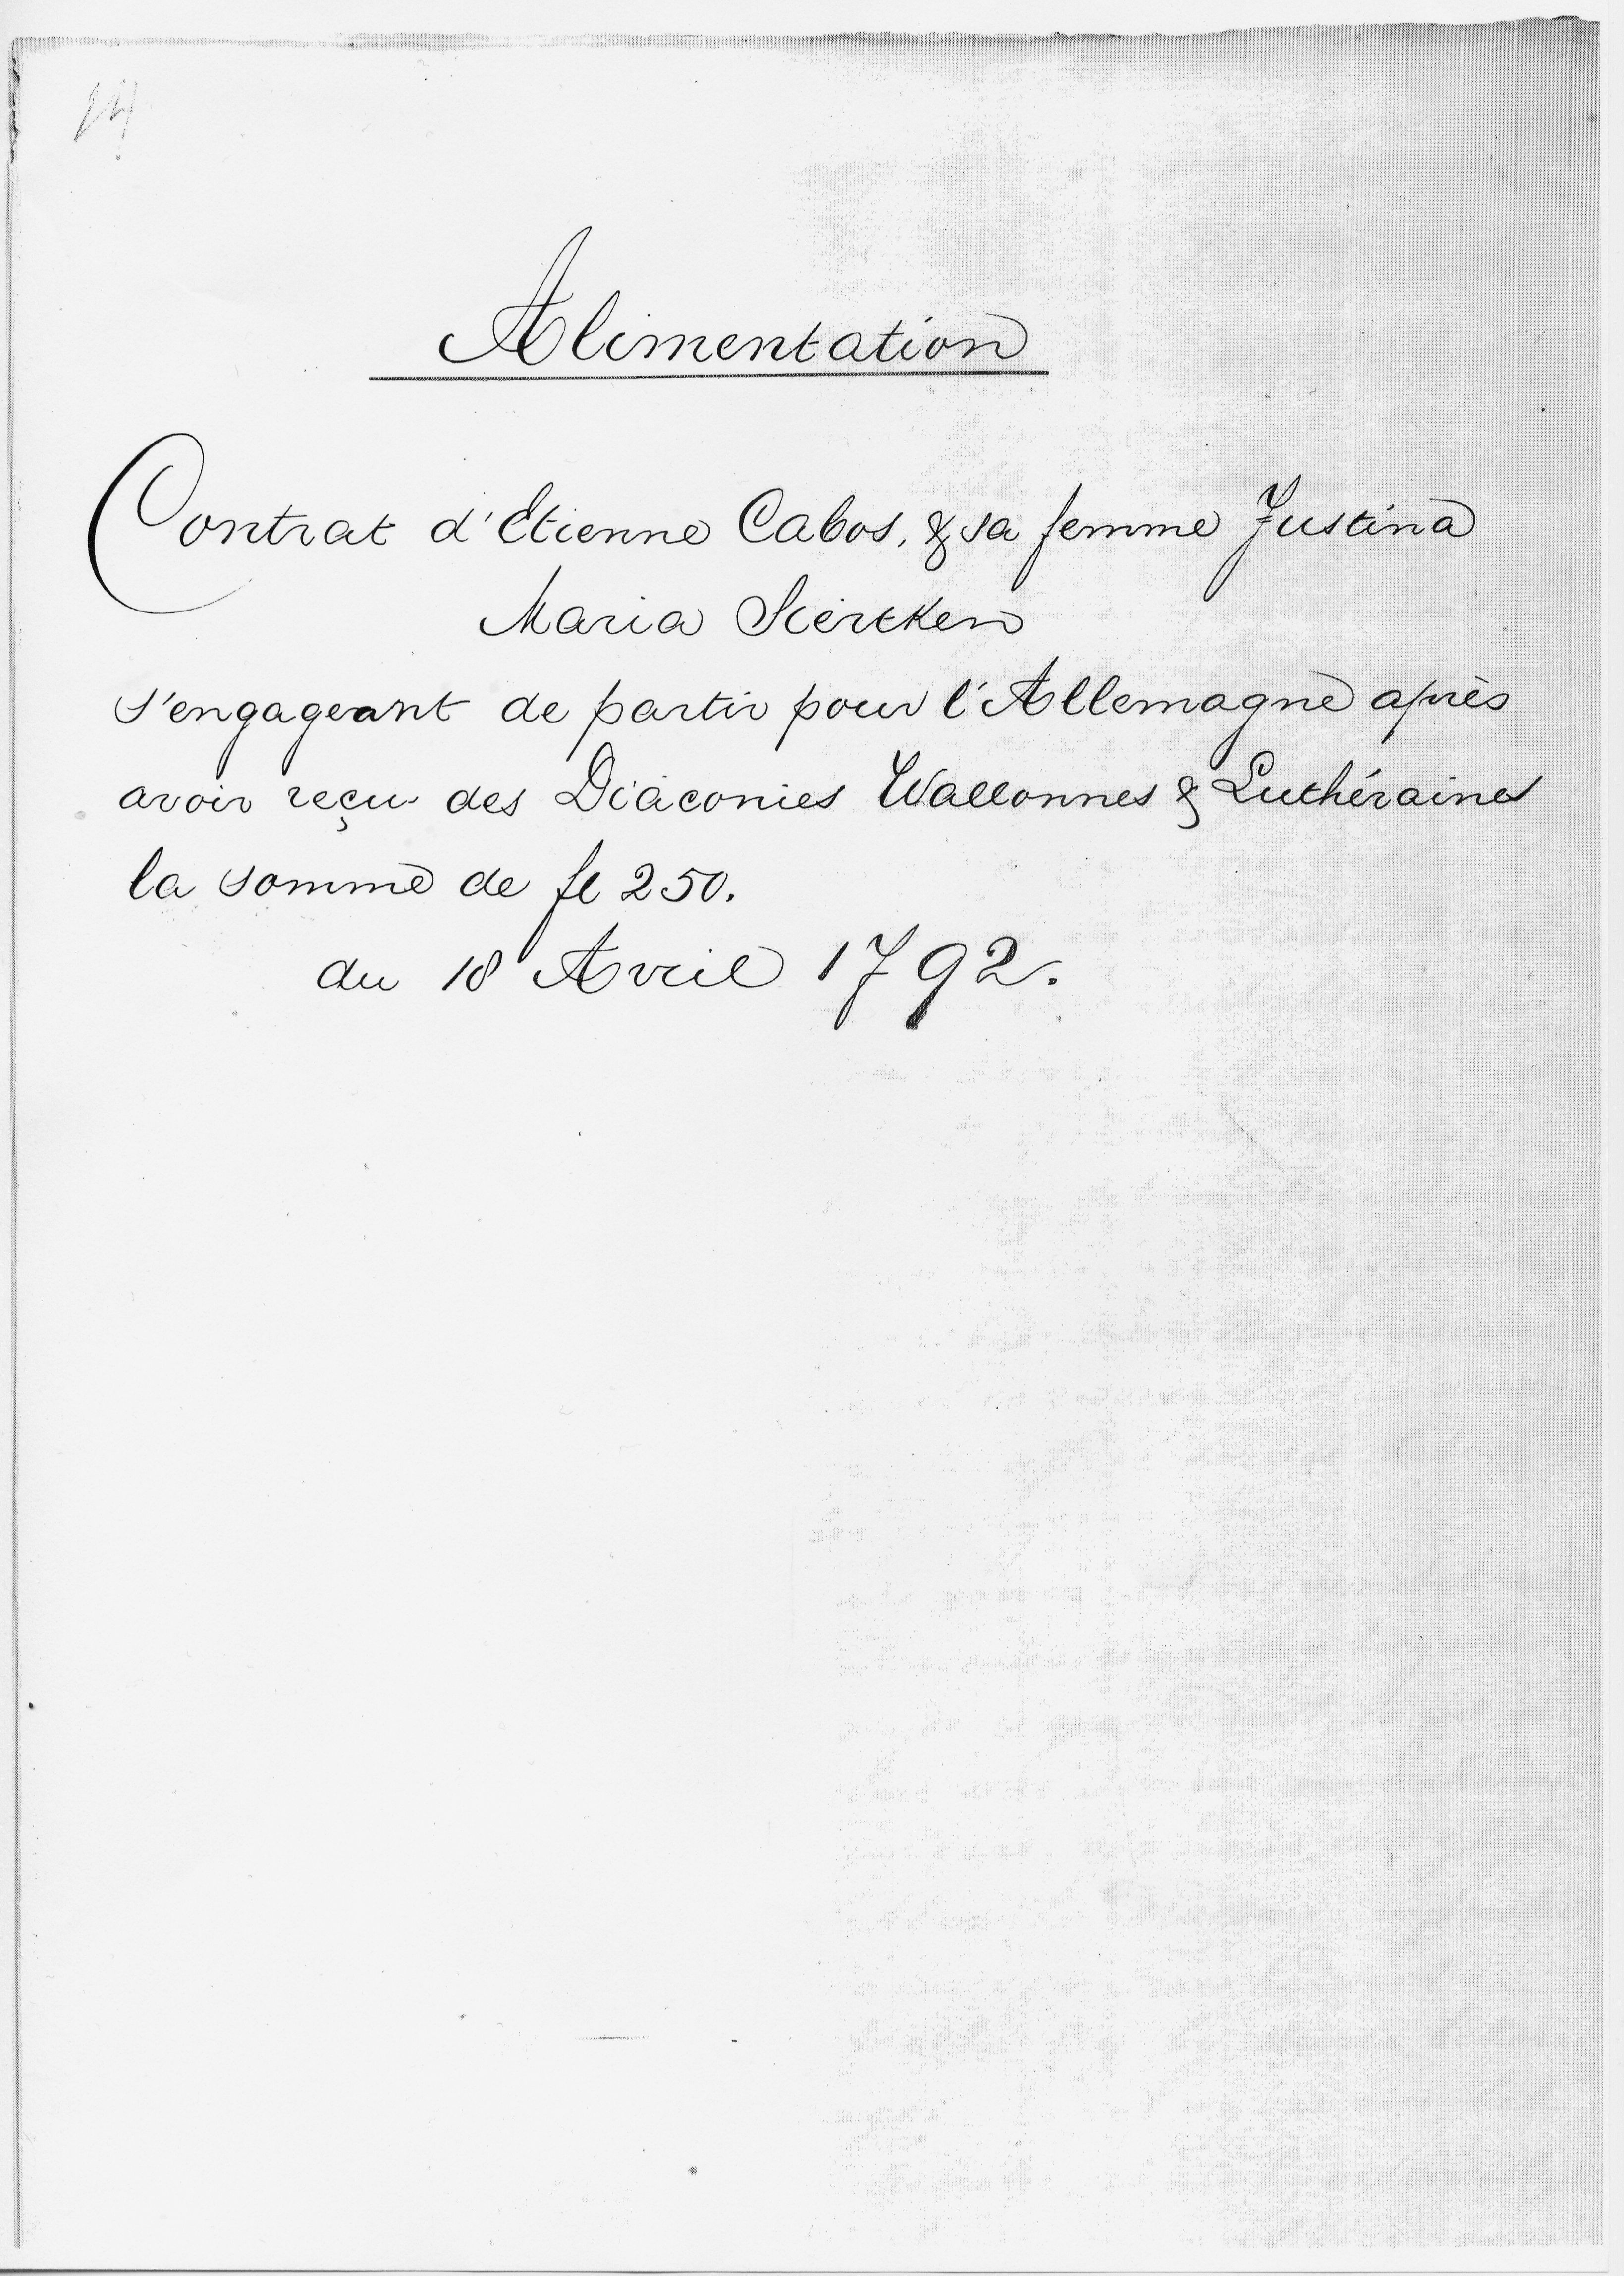 Alimentation
Contrat d'Etienne Cabos, & sa femme Justina
Maria Siertken
s'engageant de partir pour l'Allemagne après
avoir reçu des Diaconies Wallonnes & Luthéraines
la somme de fl 250.
du 18 Avril 1792.